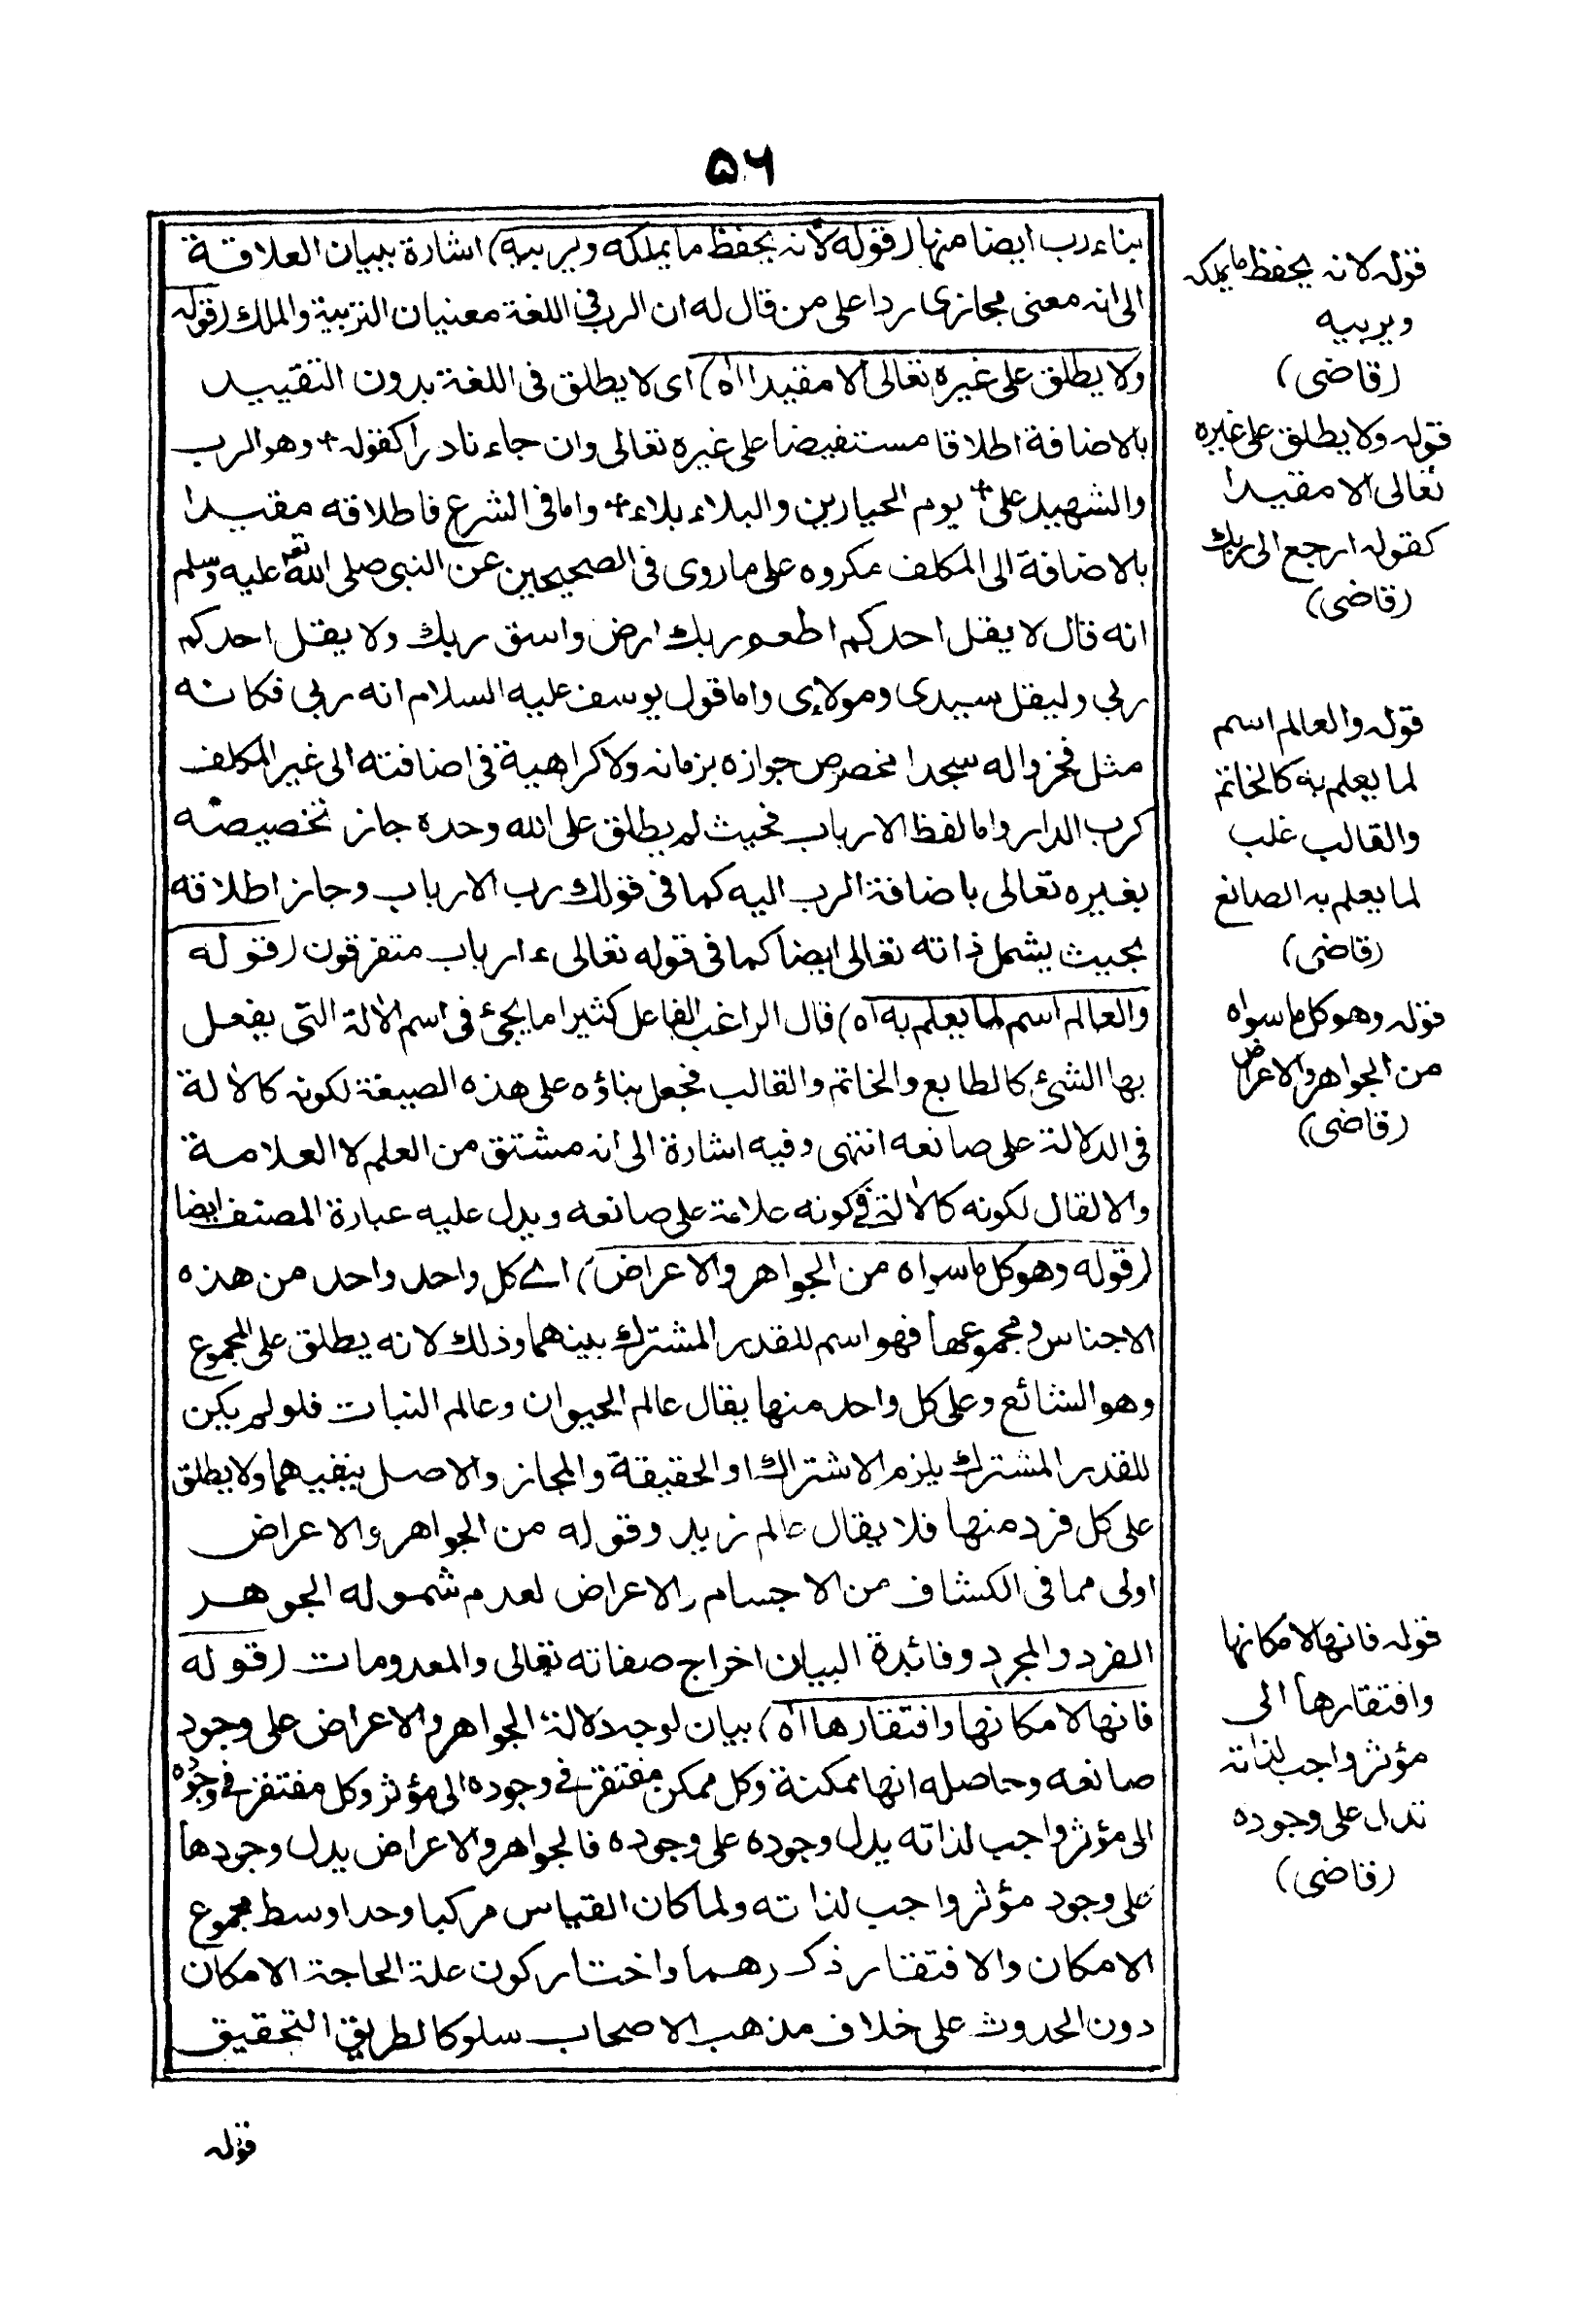 ۵۶
بناء رب ايضا منها (قوله لأنه يحفظ ما يملكه ويربيه) اشارة ببيان العلاقة
الى انه معنى مجازى ردا على من قال له ان الرب فى اللغة معنيان التربية والملك (قوله
ولا يطلق على غيره تعالى الا مقيدا اه) اى لا يطلق فى اللغة بدون التقييد
بالاضافة اطلاقا مستفيضا على غيره تعالى وان جاء نادرا كقوله + وهو الرب
والشهيد على + يوم الحيارين والبلاء بلاء + واما فى الشرع فاطلاقه مقيدا
بالاضافة الى المكلف مكروه على ما روى فى الصحيحين عن النبى صلى الله تعـ عليه وسلم
انه قال لا يقل احدكم اطعم ربك ارض واسق ربك ولا يقل احدكم
ربى وليقل سيدى ومولاءى واما قول يوسف عليه السلام انه ربى فكانه
مثل فخروا له سجدا مخصوص جوازه بزمانه ولا كراهية فى اضافته الى غير المكلف
كرب الدار واما لفظ الارباب فحيث لم يطلق على الله وحده جاز تخصيصه
بغيره تعالى باضافة الرب اليه كما فى قولك رب الارباب وجاز اطلاقه
بحيث يشمل ذاته تعالى ايضا كما فى قوله تعالى ء ارباب متفرقون (قوله
والعالم اسم لما يعلم به اه) قال الراغب الفاعل كثيرا ما يجئ فى اسم الالة التى يفعل
بها الشئ كالطابع والخاتم والقالب فجعل بناؤه على هذه الصيغة لكونه كالالة
فى الدلالة على صانعه انتهى وفيه اشارة الى انه مشتق من العلم لا العلامة
والا لقال لكونه كالالة فى كونه علامة على صانعه ويدل عليه عبارة المصنف ايضا
(قوله وهو كل ما سواه من الجواهر والاعراض) اے كل واحد واحد من هذه
الاجناس ومجموعها فهو اسم للقدر المشترك بينهما وذلك لانه يطلق على المجموع
وهو الشائع وعلى كل واحد منها يقال عالم الحيوان وعالم النبات فلو لم يكن
للقدر المشترك يلزم الاشتراك او الحقيقة والمجاز والاصل ينفيهما ولا يطلق
على كل فرد منها فلا يقال عالم زيد وقوله من الجواهر والاعراض
اولى مما فى الكشاف من الاجسام والاعراض لعدم شموله الجوهر
الفرد والمجرد وفائدة البيان اخراج صفاته تعالى والمعدومات (قوله
فانها لامكانها وافتقارها اه) بيان لوجه دلالة الجواهر والاعراض على وجود
صانعه وحاصله انها ممكنة وكل ممكن مفتقر فے وجوده الى مؤثر وكل مفتقر فے وجوده
الى مؤثر واجب لذاته يدل وجوده على وجوده فالجواهر والاعراض يدل وجودها
على وجود مؤثر واجب لذاته ولما كان القياس مركبا وحد اوسط مجموع
الامكان والافتقار ذكرهما واختار كون علة الحاجة الامكان
دون الحدوث على خلاف مذهب الاصحاب سلوكا لطريق التحقيق
قوله لانه يحفظ ما يملكه
ويربيه
(قاضى)
قوله ولا يطلق على غيره
تعالى الا مقيدا
كقوله ارجع الى ربك
(قاضى)
قوله والعالم اسم
لما يعلم به كالخاتم
والقالب غلب
لما يعلم به الصانع
(قاضى)
قوله وهو كل ما سواه
من الجواهر والاعراض
(قاضى)
قوله فانها لامكانها
وافتقارها الى
مؤثر واجب لذاته
تدل على وجوده
(قاضى)
قوله